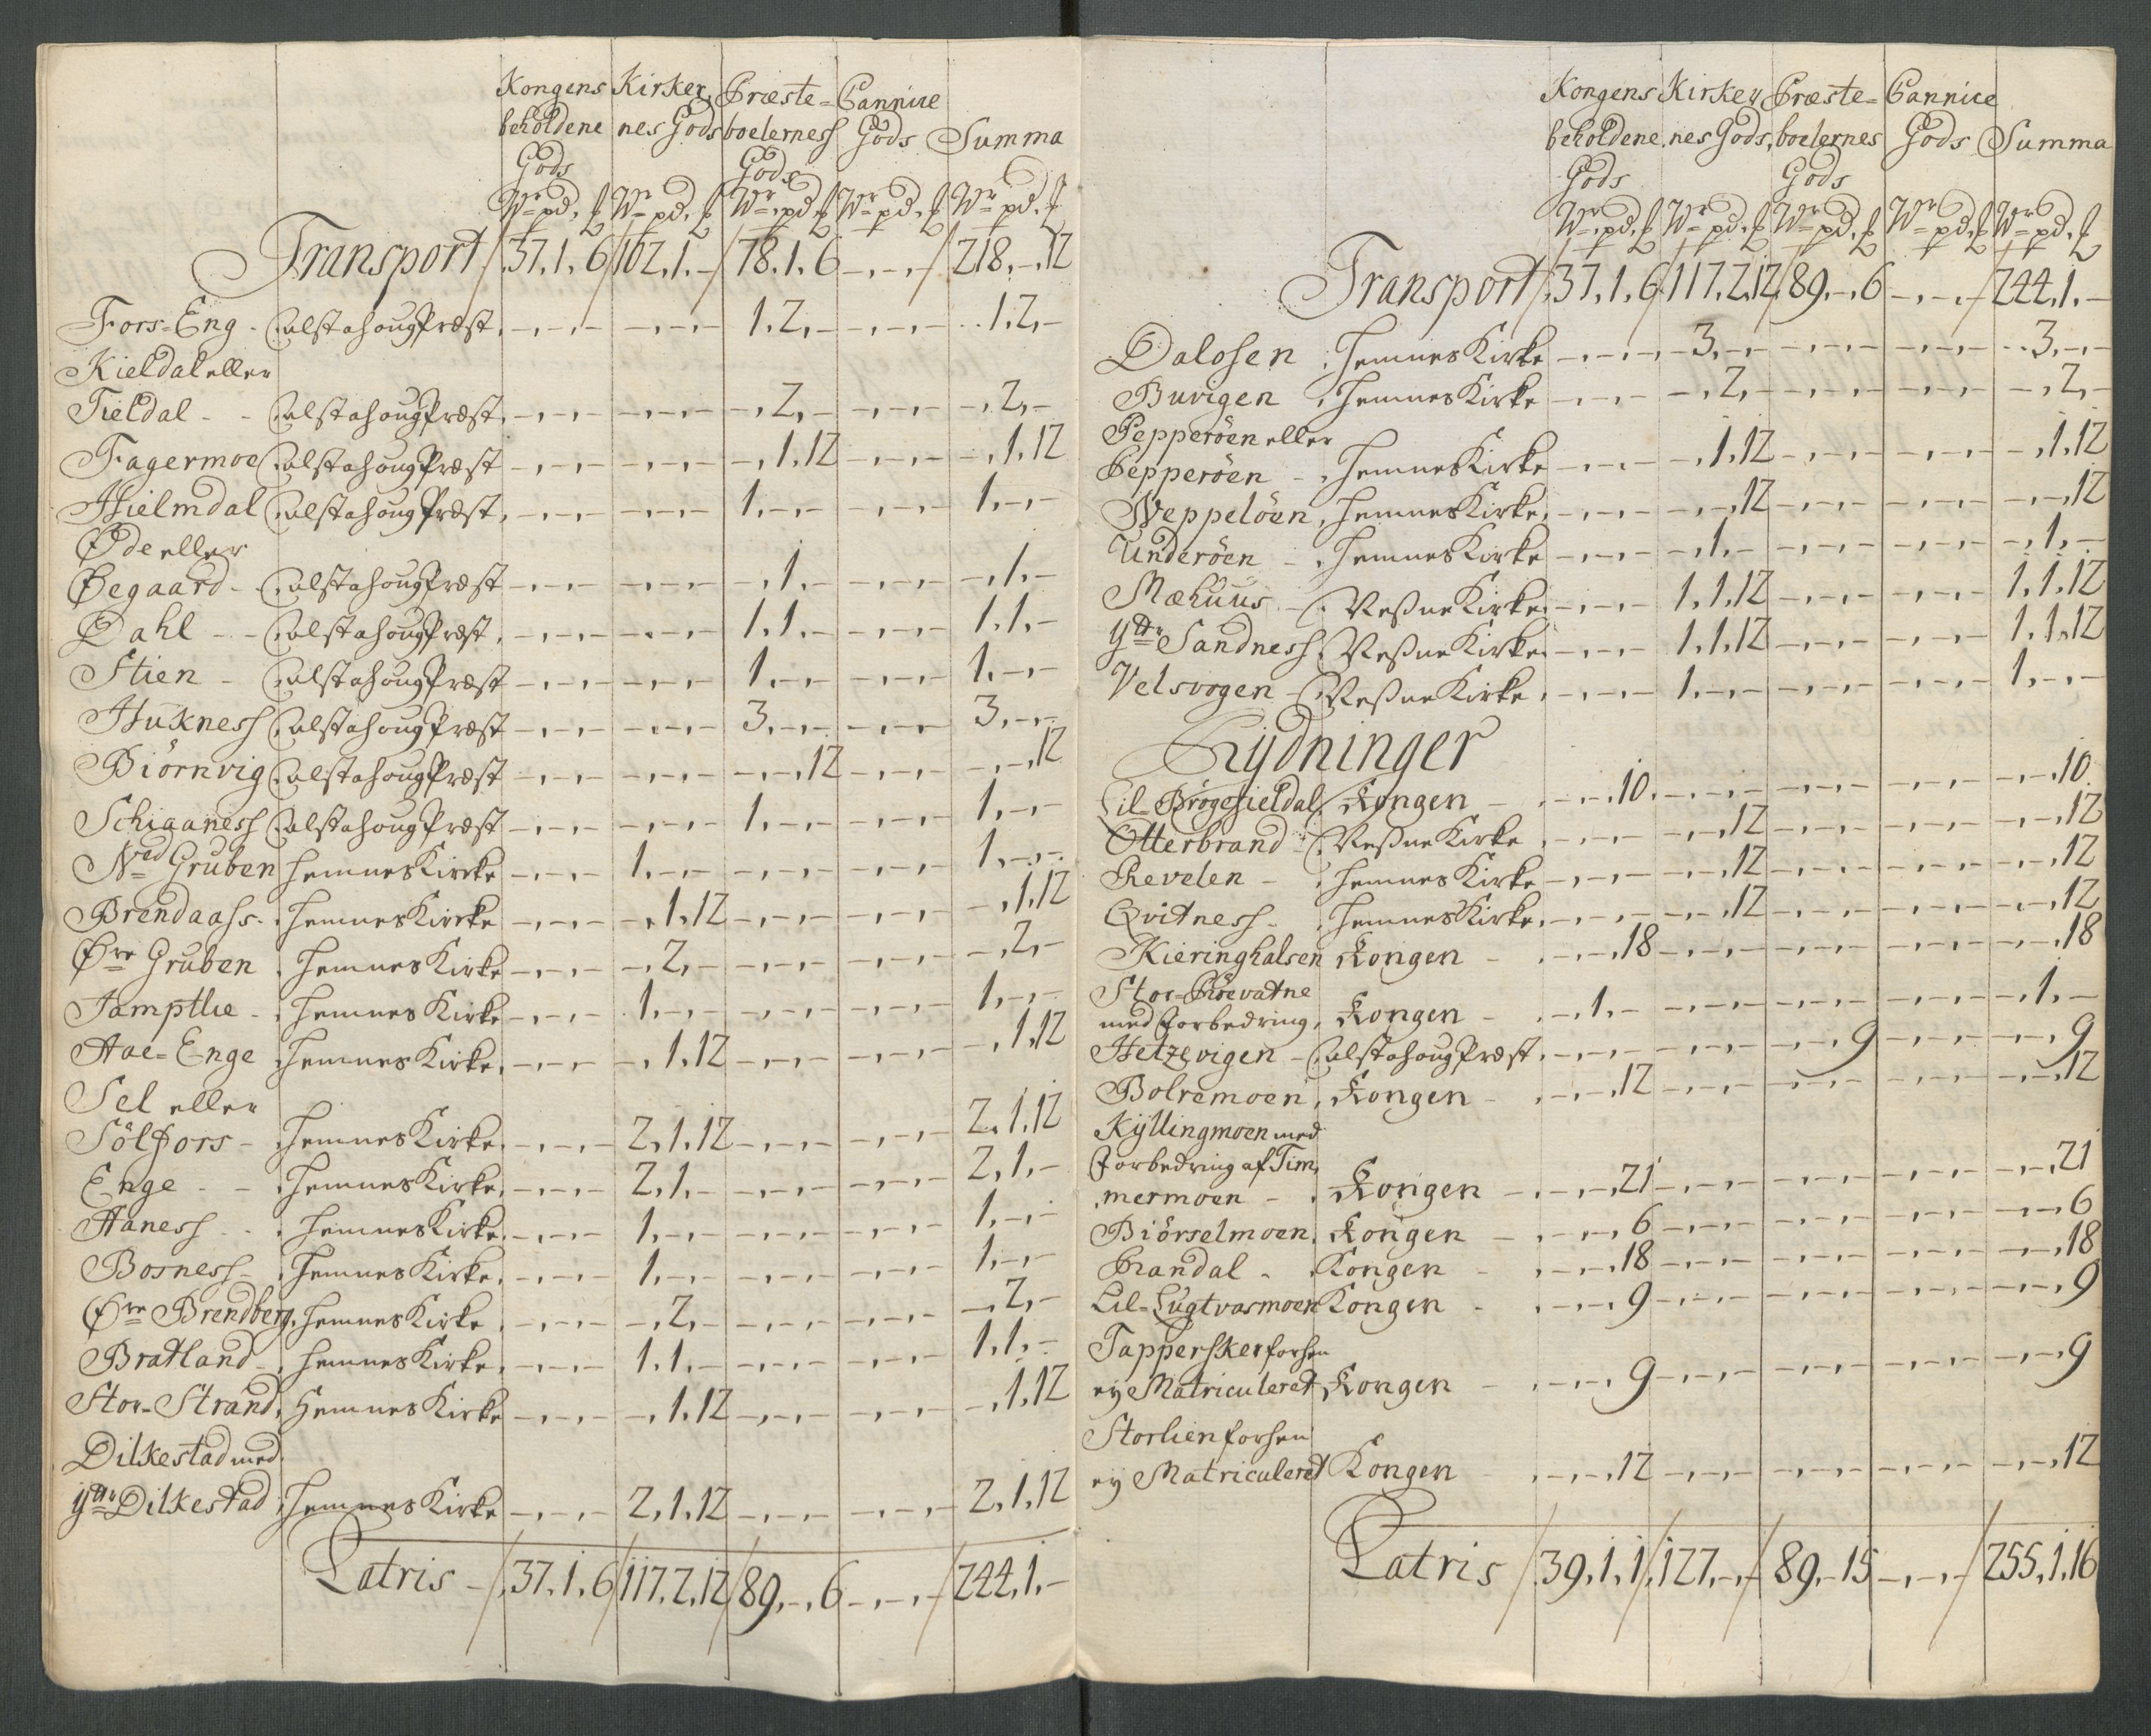 Kongens Kirker Præste= Cannice
beholdene nes Gods boelernes Gods Summa
Gods Gods
Wr pd, Wr pd, Wr pd, Wr pd, Wr pd,
Transport 37,1,6 102,1,- 78,1,6 -,-,- 218,-,12
Fors=Eng - Calstahoug Præst, -,-,- -,-,- 1,2,- -,-,- 1,2,-
Kieldal eller
Tieldal - - Calstahoug Præst, -,-,- -,-,- -,2,- -,-,- -,2,-
Fagermoe Calstahoug Præst -,-,- -,-,- -,1,12 -,-,- -,1,12
Hielmdal Calstahoug Præst, -,-,- -,-,- 1,-,- -,-,- 1,-,-
Øde eller
Øegaard - Calstahoug Præst -,-,- -,-,- -,1,- -,-,- -,1,-
Dahl - - Calstahoug Præst, -,-,- -,-,- 1,1,- -,-,- 1,1,-
Stien - Calstahoug Præst -,-,- -,-,- 1,-,- -,-,- 1,-,-
Huknes Calstahoug Præst -,-,- -,-,- 3,-,- -,-,- 3,-,-
Biörnvig Calstahoug Præst -,-,- -,-,- -,-,12 -,-,- -,-,12
Schiaanes Calstahoug Præst -,-,- -,-,- 1,-,- -,-,- 1,-,-
Ned Gruben Hemnes Kirke -,-,- 1,-,- -,-,- -,-,- 1,-,-
Brendaahs - Hemnes Kirke -,-,- -,1,12 -,-,- -,-,- -,1,12
Øre Gruben , Hemnes Kirke -,-,- -,2,- -,-,- -,-,- -,2,-
Jamptlie - , Hemnes Kirke -,-,- 1,-,- -,-,- -,-,- 1,-,-
Aae=Enge Hemnes Kirke, -,-,- -,1,12 -,-,- -,-,- -,1,12
Sel eller
Sölfors - Hemnes Kirke, -,-,- 2,1,12 -,-,- -,-,- 2,1,12
Enge - - Hemnes Kirke, -,-,- 2,1,- -,-,- -,-,- 2,1,-
Hanes - - Hemnes Kirke, -,-,- 1,-,- -,-,- -,-,- 1,-,-
Bosnes - Hemnes Kirke, -,-,- 1,-,- -,-,- -,-,- 1,-,-
Øre Brendberg, Hemnes Kirke, -,-,- -,2,- -,-,- -,-,- -,2,-
Bratland - , Hemnes Kirke, -,-,- 1,1,- -,-,- -,-,- 1,1,-
Stor=Strand, Hemnes Kirke -,-,- -,1,12 -,-,- -,-,- -,1,12
Dilkestad med
ytr Dilkestad Hemnes Kirke -,-,- 2,1,12 -,-,- -,-,- 2,1,12
Latris - 37,1,6 117,2,12 89,-,6 -,-,- 244,1,-
Kongens Kirker Præste= Cannice
beholdene, nes Gods, boelernes Gods Summa
Gods Gods
Wr pd, Wr pd, Wr pd, Wr pd, Wr pd,
Transport 37,1,6 117,2,12 89,-,6 -,-,- 244,1,-
Dalosen , Hemnes Kirke -,-,- 3,-,- -,-,- -,-,- 3,-,-
Buvigen , Hemnes Kirke -,-,- -,2,- -,-,- -,-,- -,2,-
Pepperöen eller
Bepperöen - , Hemnes Kirke -,-,- -,1,12 -,-,- -,-,- -,1,12
Weppelöen, Hemnes Kirke, -,-,- -,-,12 -,-,- -,-,- -,-,12
Underöen - , Hemnes Kirke -,-,- -,1,- -,-,- -,-,- -,1,-
Mæhuus - Veßne Kirke, -,-,- 1,1,12 -,-,- -,-,- 1,1,12
ytr Sandnes Veßne Kirke, -,-,- 1,1,12 -,-,- -,-,- 1,1,12
Velsvogen - Veßne Kirke, -,-,- 1,-,- -,-,- -,-,- 1,-,-
Rydninger
Lil=Brøgefieldal Kongen - -,-,10, -,-,- -,-,- -,-,- -,-,10
Otterbrand - Veßne Kirke, -,-,- -,-,12 -,-,- -,-,- -,-,12
Revelen - , Hemnes Kirke -,-,- -,-,12 -,-,- -,-,- -,-,12
Qvitnes - , Hemnes Kirke, -,-,- -,-,12 -,-,- -,-,- -,-,12
Kieringhalsen Kongen - -,-,18 -,-,- -,-,- -,-,- -,-,18
Stor=Røevatne
med Forbedring, Kongen - -,1,- -,-,- -,-,- -,-,- -,1,-
Hetzevigen - Calstahoug Præst, -,-,- -,-,- -,-,9 -,-,- -,-,9
Bolremoen, Kongen - -,-,12 -,-,- -,-,- -,-,- -,-,12
Kyllingmoen med
Forbedring af Tim,
,mermoen - , Kongen - -,-,21 -,-,- -,-,- -,-,- -,-,21
Biörselmoen, Kongen - -,-,6 -,-,- -,-,- -,-,- -,-,6
Randal - , Kongen - -,-,18 -,-,- -,-,- -,-,- -,-,18
Lil=Lugtvasmoen Kongen - -,-,9 -,-,- -,-,- -,-,- -,-,9
Tappersker forhen
ey Matriculeret Kongen - -,-,9 -,-,- -,-,- -,-,- -,-,9
Storlien forhen
ey Matriculeret Kongen - -,-,12 -,-,- -,-,- -,-,- -,-,12
Latris 39,1,1 127,-,- 89,-,15 -,-,- 255,1,16